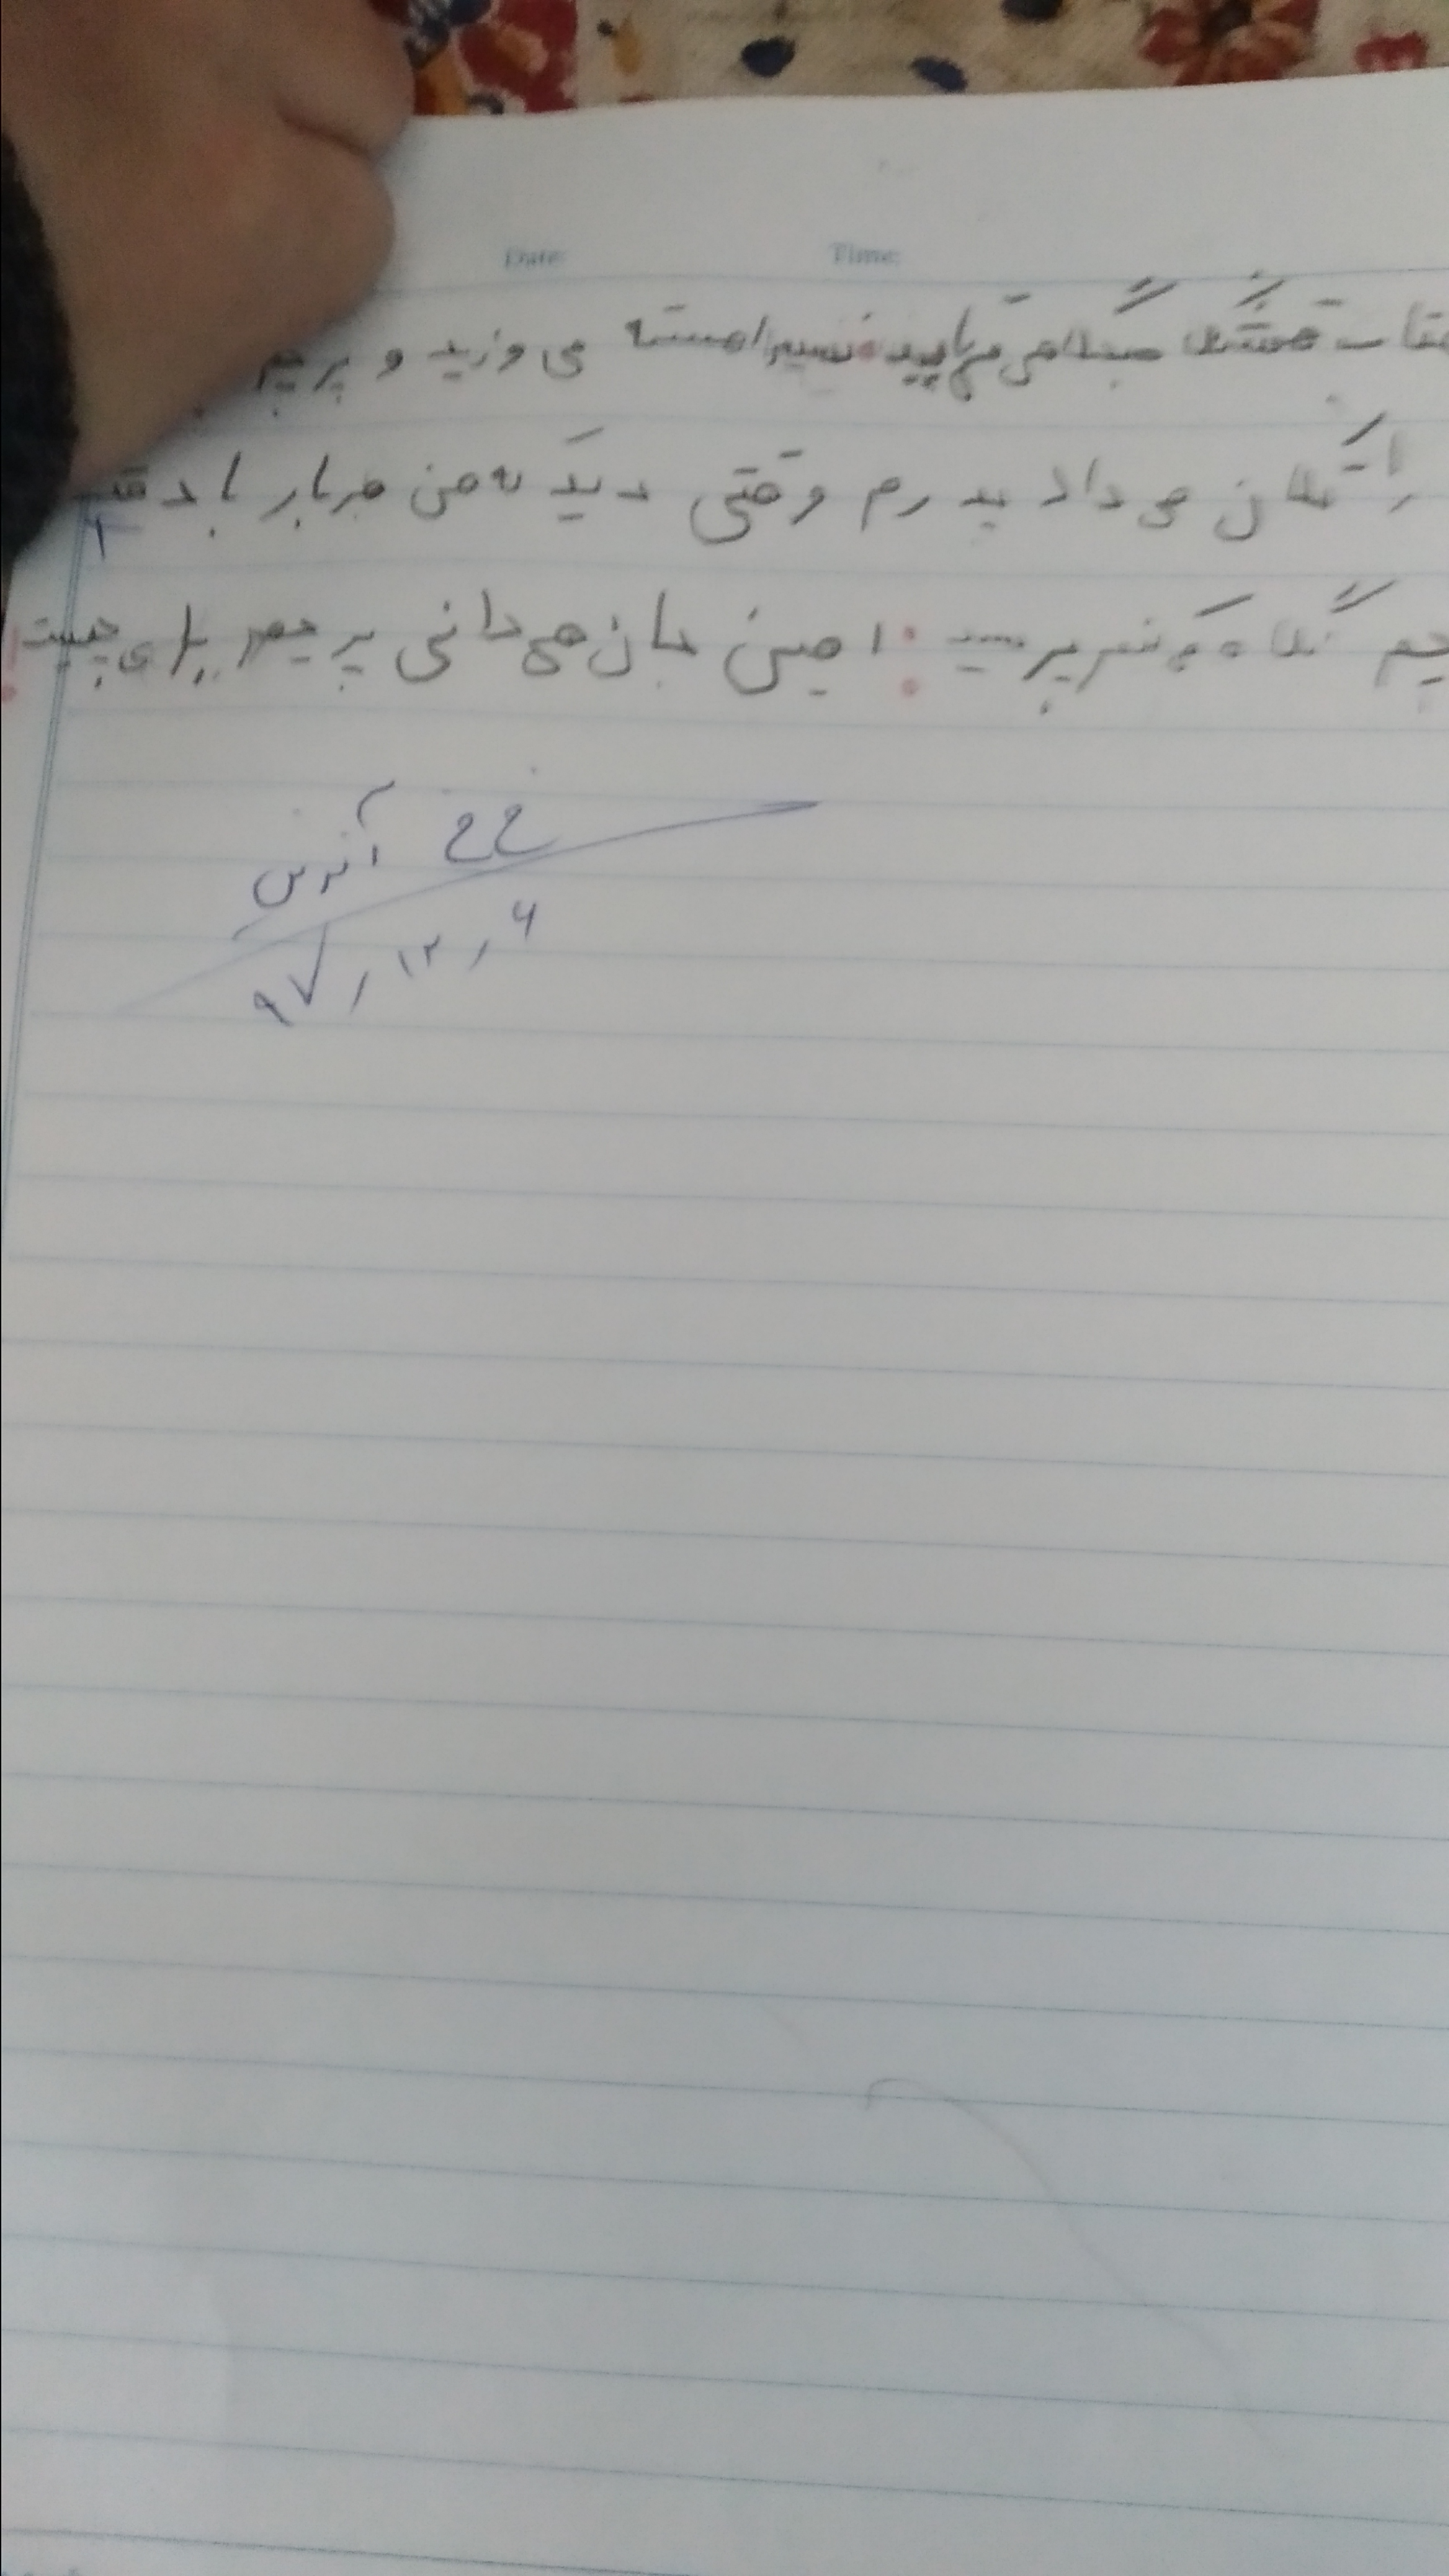 Date: Time:
قشنگ صبحگاهی می‌تابید. نسیم اهسته می وزید و پرچم
را تکان می داد پدرم وقتی دید که من هربار با دقت
پرچم نگاه می‌کنم پرسید: امین جان می‌دانی پرچم برای چیست
آفرین
۹۷,۱۲,۶